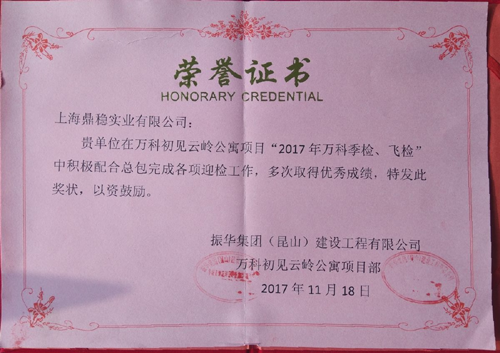 荣誉证书
HONORARY CREDENTIAL
上海鼎稳实业有限公司：
贵单位在万科初见云岭公寓项目“2017年万科季检、飞检”
中积极配合总包完成各项迎检工作，多次取得优秀成绩，特发此
奖状，以资鼓励。
振华集团（昆山）建设工程有限公司
万科初见云岭公寓项目部
2017年11月18日